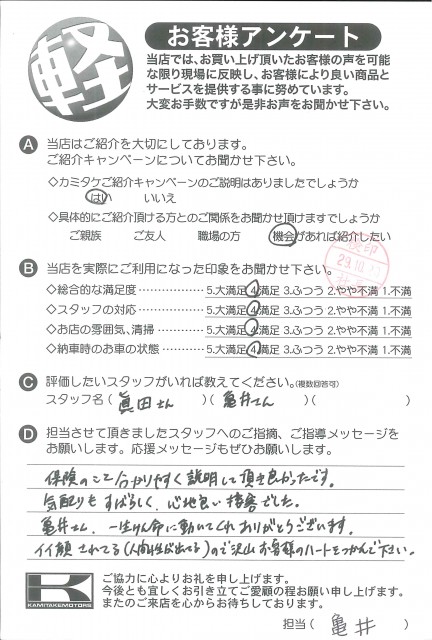 軽
お客様アンケート
当店では、お買い上げ頂いたお客様の声を可能
な限り現場に反映し、お客様により良い商品と
サービスを提供する事に努めています。
大変お手数ですが是非お声をお聞かせ下さい。
A 当店はご紹介を大切にしております。
ご紹介キャンペーンについてお聞かせ下さい。
◇カミタケご紹介キャンペーンのご説明はありましたでしょうか
はい いいえ
◇具体的にご紹介頂ける方とのご関係をお聞かせ頂けますでしょうか
ご親族 ご友人 職場の方 機会があれば紹介したい
B 当店を実際にご利用になった印象をお聞かせ下さい。
◇総合的な満足度 5.大満足 4.満足 3.ふつう 2.やや不満 1.不満
◇スタッフの対応 5.大満足 4.満足 3.ふつう 2.やや不満 1.不満
◇お店の雰囲気、清掃 5.大満足 4.満足 3.ふつう 2.やや不満 1.不満
◇納車時のお車の状態 5.大満足 4.満足 3.ふつう 2.やや不満 1.不満
C 評価したいスタッフがいれば教えてください。(複数回答可)
スタッフ名( 眞田さん )( 亀井さん )( )
D 担当させて頂きましたスタッフへのご指摘、ご指導メッセージを
お願いします。応援メッセージもぜひお願いします。
保険のこと分かりやすく説明して頂き良かったです。
気配りもすばらしく、心地良い接客でした。
亀井さん、一生けん命に動いてくれありがとうございます。
イイ顔されてる(人間性が出てる)ので沢山お客様のハートをつかんで下さい。
KAMITAKEMOTORS
ご協力に心よりお礼を申し上げます。
今後とも宜しくお引き立てご愛顧の程お願い申し上げます。
またのご来店を心からお待ちしております。
担当( 亀井 )